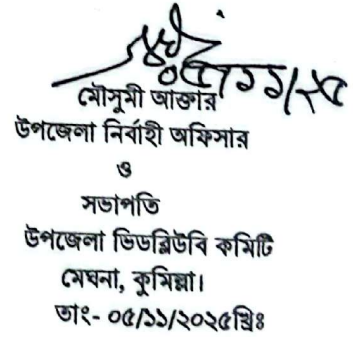 ০৫/১১/২৫
মৌসুমী আক্তার
উপজেলা নির্বাহী অফিসার
ও
সভাপতি
উপজেলা ভিডব্লিউবি কমিটি
মেঘনা, কুমিল্লা।
তাং- ০৫/১১/২০২৫খ্রিঃ